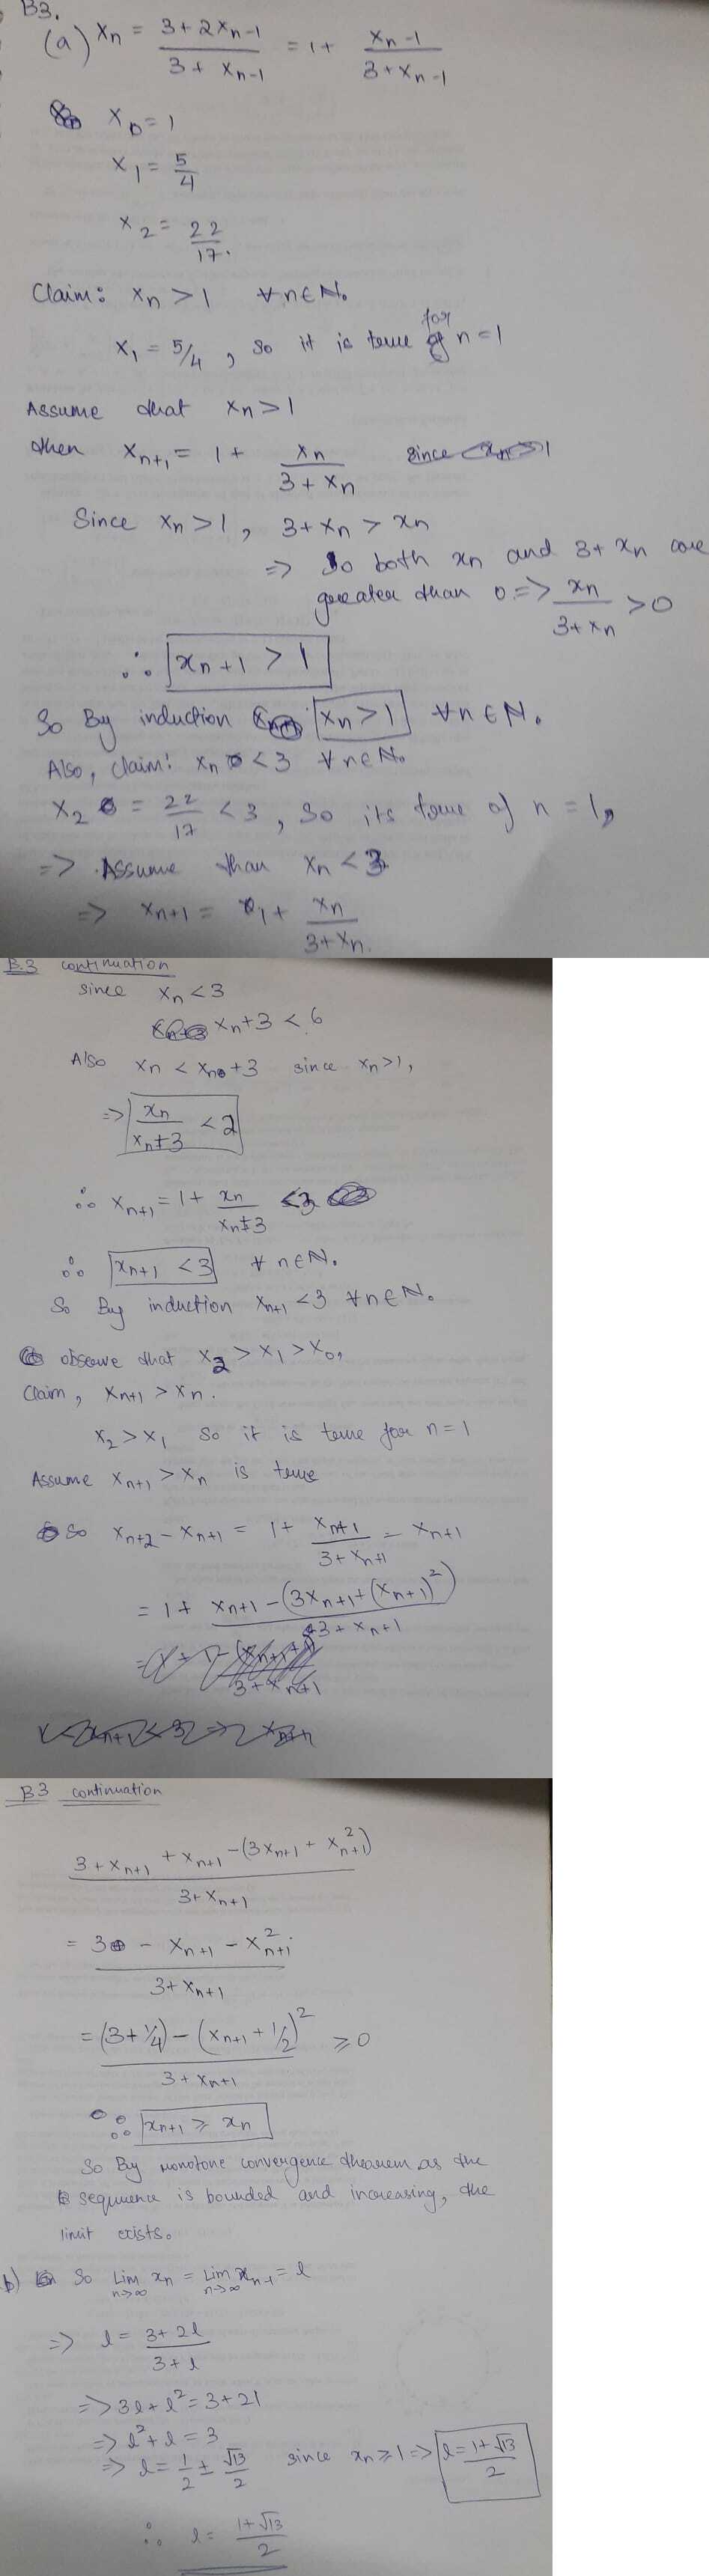 B3.
(a) xn = (3+2xn-1)/(3+xn-1) = 1+ xn-1/(3+xn-1)
x0 = 1
x1 = 5/4
x2 = 22/17.
Claim: xn > 1 ∀n∈N.
x1 = 5/4, so it is true for n=1
Assume that xn > 1
then xn+1 = 1 + xn/(3+xn) since xn>1
Since xn > 1, 3+xn > xn
=> So both xn and 3+xn are
greater than 0 => xn/(3+xn) > 0
∴ xn+1 > 1
So By induction xn > 1 ∀n∈N.
Also, claim: xn < 3 ∀n∈N.
x2 = 22/17 < 3, So its true of n = 1,
=> Assume than xn < 3
=> xn+1 = 1+ xn/(3+xn).
B.3 continuation
since xn < 3
xn+3 < 6
Also xn < xn+3 since xn>1,
=> xn/(xn+3) < 2
∴ xn+1 = 1+ xn/(xn+3) <3
∴ xn+1 < 3 ∀n∈N.
So By induction xn+1 < 3 ∀n∈N.
observe that x2 > x1 > x0,
Claim, xn+1 > xn.
x2 > x1 So it is true for n=1
Assume xn+1 > xn is true
So xn+2 - xn+1 = 1+ xn+1/(3+xn+1) - xn+1
= 1+ (xn+1 - (3xn+1+(xn+1)²))/(3+xn+1)
B3 continuation
(3+xn+1 + xn+1 -(3xn+1 + x²n+1))/(3+xn+1)
= (3 - xn+1 - x²n+1)/(3+xn+1)
= ((3+1/4) - (xn+1 + 1/2)²)/(3+xn+1) ≥ 0
∴ xn+1 ≥ xn
So By monotone convergence theorem as the
sequence is bounded and increasing, the
limit exists.
b) So Lim n→∞ xn = Lim n→∞ xn-1 = l
=> l = (3+2l)/(3+l)
=> 3l + l² = 3+2l
=> l² + l = 3
=> l = 1/2 ± √13/2 since xn ≥ 1 => l = (1+√13)/2
∴ l = (1+√13)/2